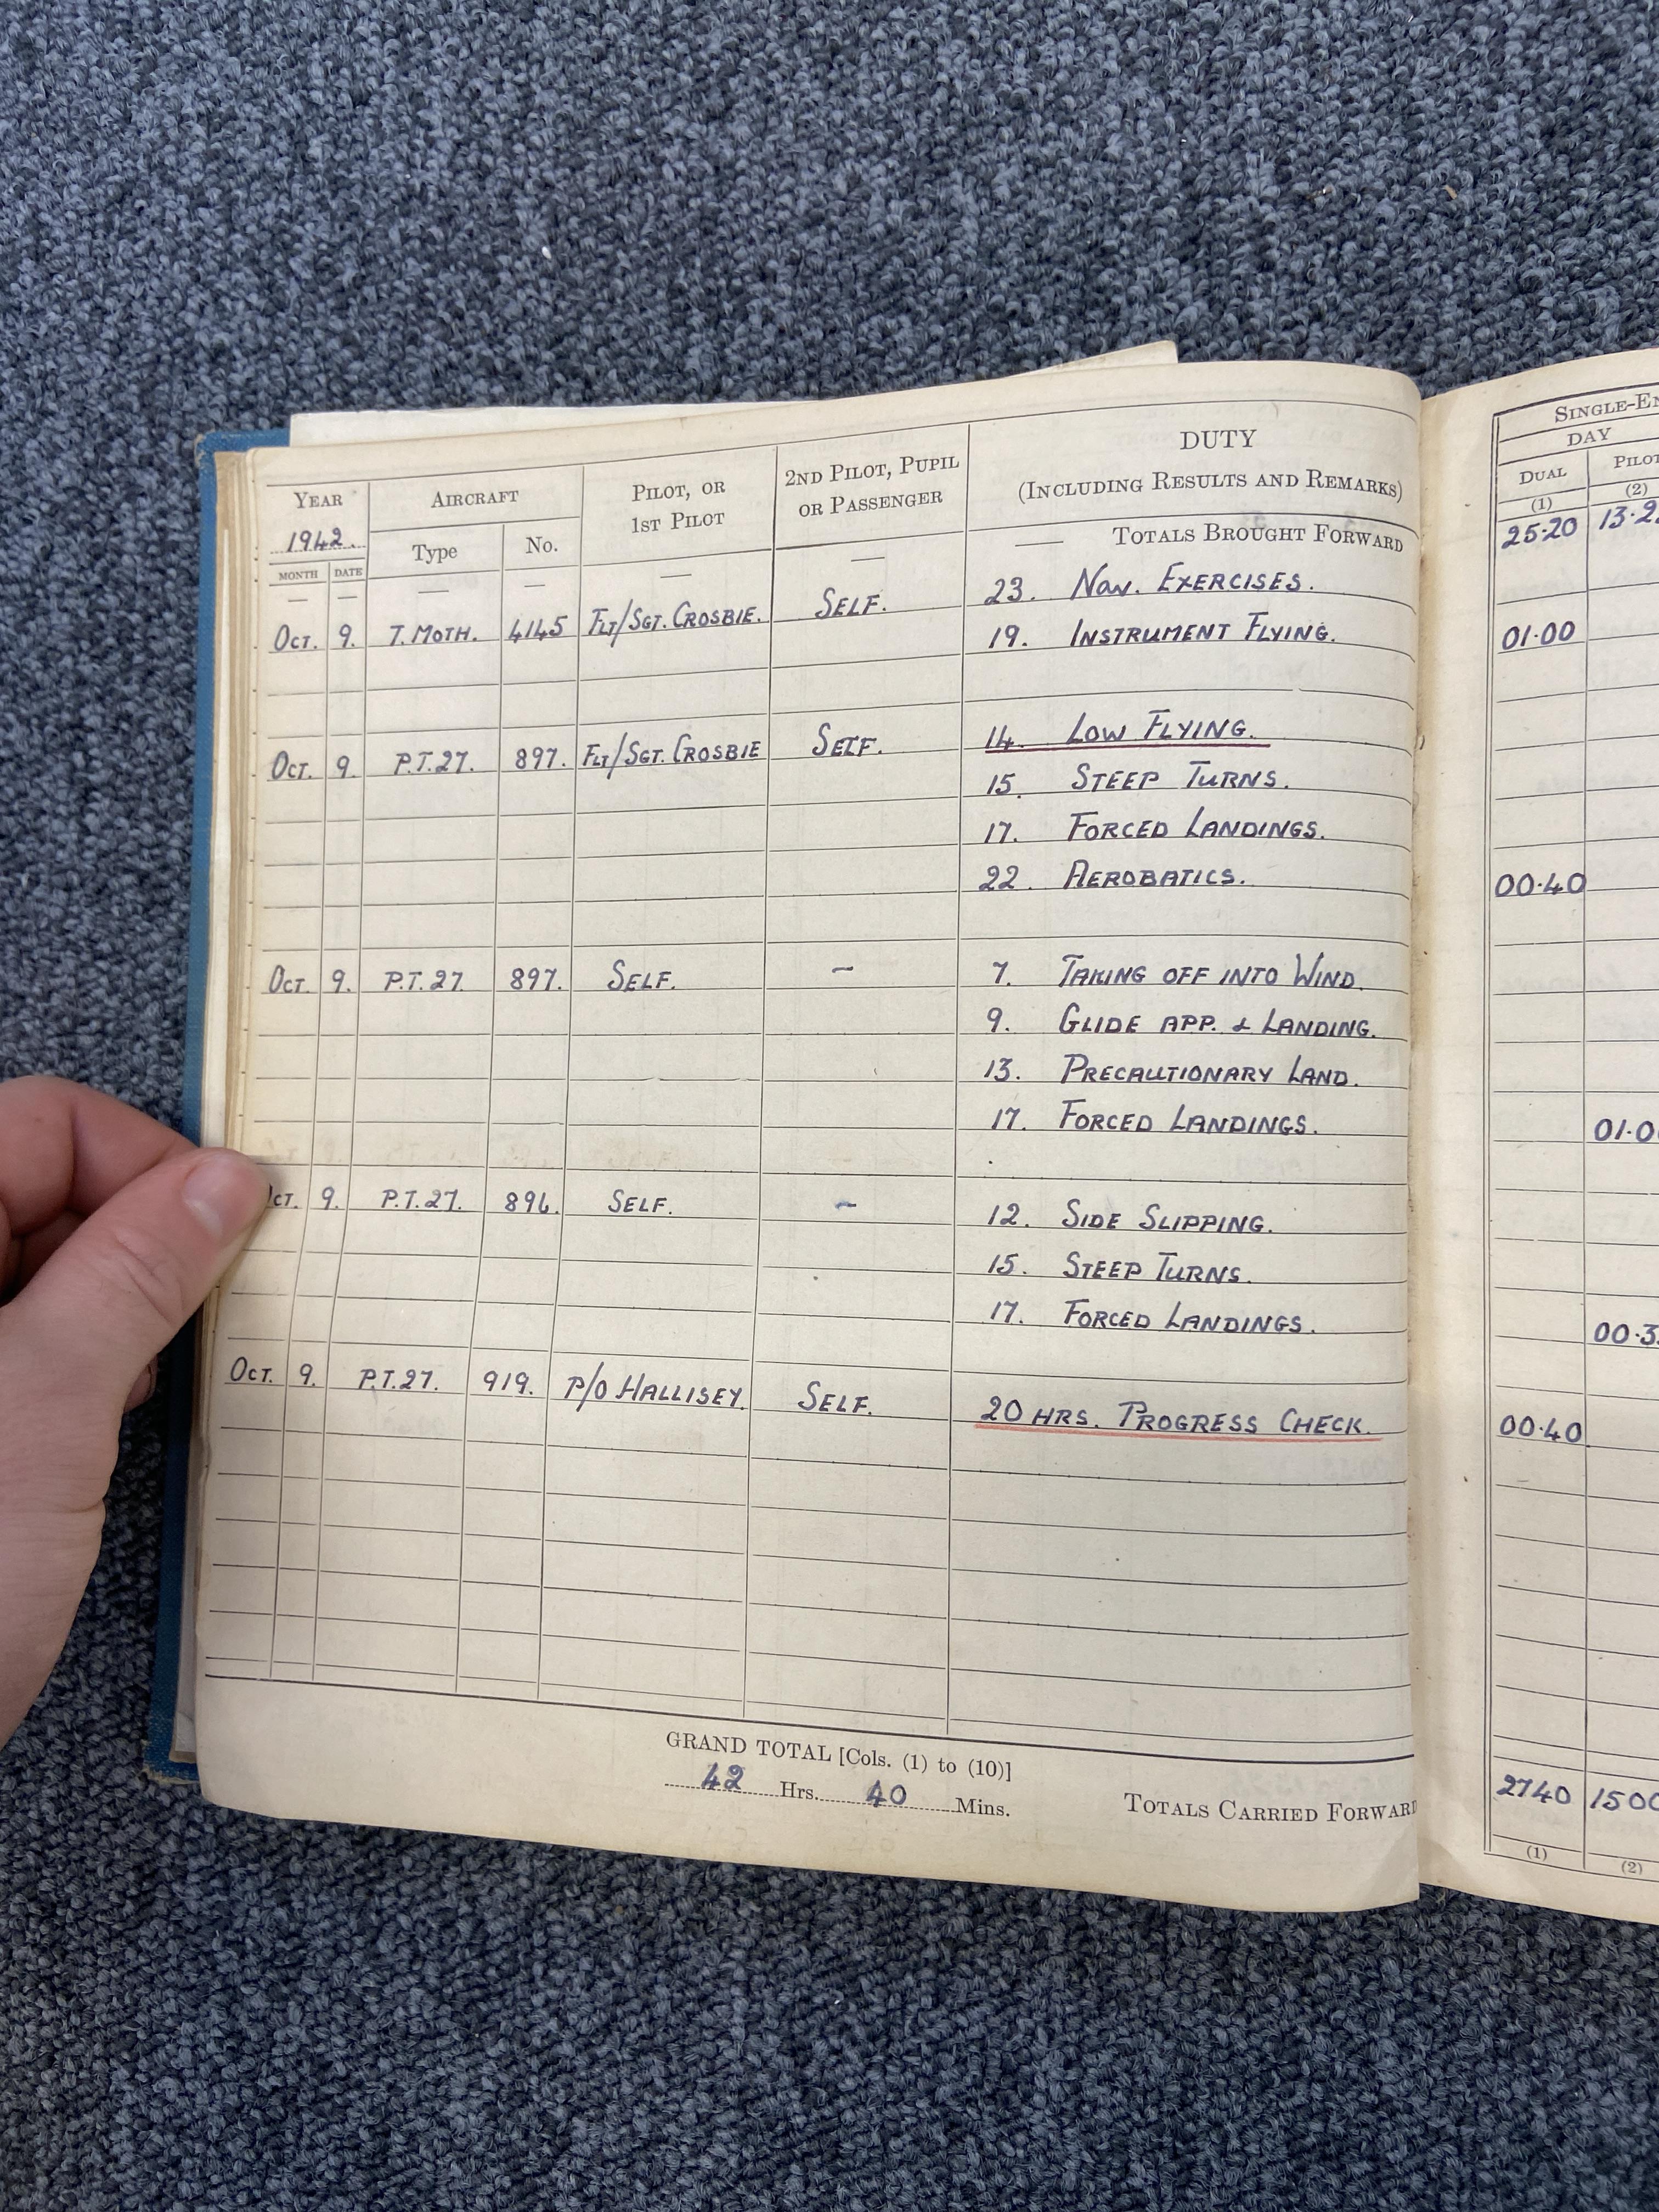 YEAR AIRCRAFT PILOT, OR 1ST PILOT 2ND PILOT, PUPIL OR PASSENGER DUTY (INCLUDING RESULTS AND REMARKS)
1942.
MONTH DATE Type No. — TOTALS BROUGHT FORWARD
— — — — — —
23. NAV. EXERCISES.
OCT. 9. T. MOTH. 4145 FLT/SGT. CROSBIE. SELF. 19. INSTRUMENT FLYING.
OCT. 9. P.T.27. 897. FLT/SGT. CROSBIE SELF. 14. LOW FLYING.
15. STEEP TURNS.
17. FORCED LANDINGS.
22. AEROBATICS.
OCT. 9. P.T.27. 897. SELF. — 7. TAKING OFF INTO WIND.
9. GLIDE APP. & LANDING.
13. PRECAUTIONARY LAND.
17. FORCED LANDINGS.
CT. 9. P.T.27. 896. SELF. — 12. SIDE SLIPPING.
15. STEEP TURNS.
17. FORCED LANDINGS.
OCT. 9. P.T.27. 919. P/O HALLISEY. SELF. 20 HRS. PROGRESS CHECK.
GRAND TOTAL [Cols. (1) to (10)]
42 Hrs. 40 Mins. TOTALS CARRIED FORWARD
SINGLE-EN
DAY
DUAL PILOT
(1) (2)
25·20 13·2
01·00
00·40
01·0
00·3
00·40
2740 1500
(1) (2)